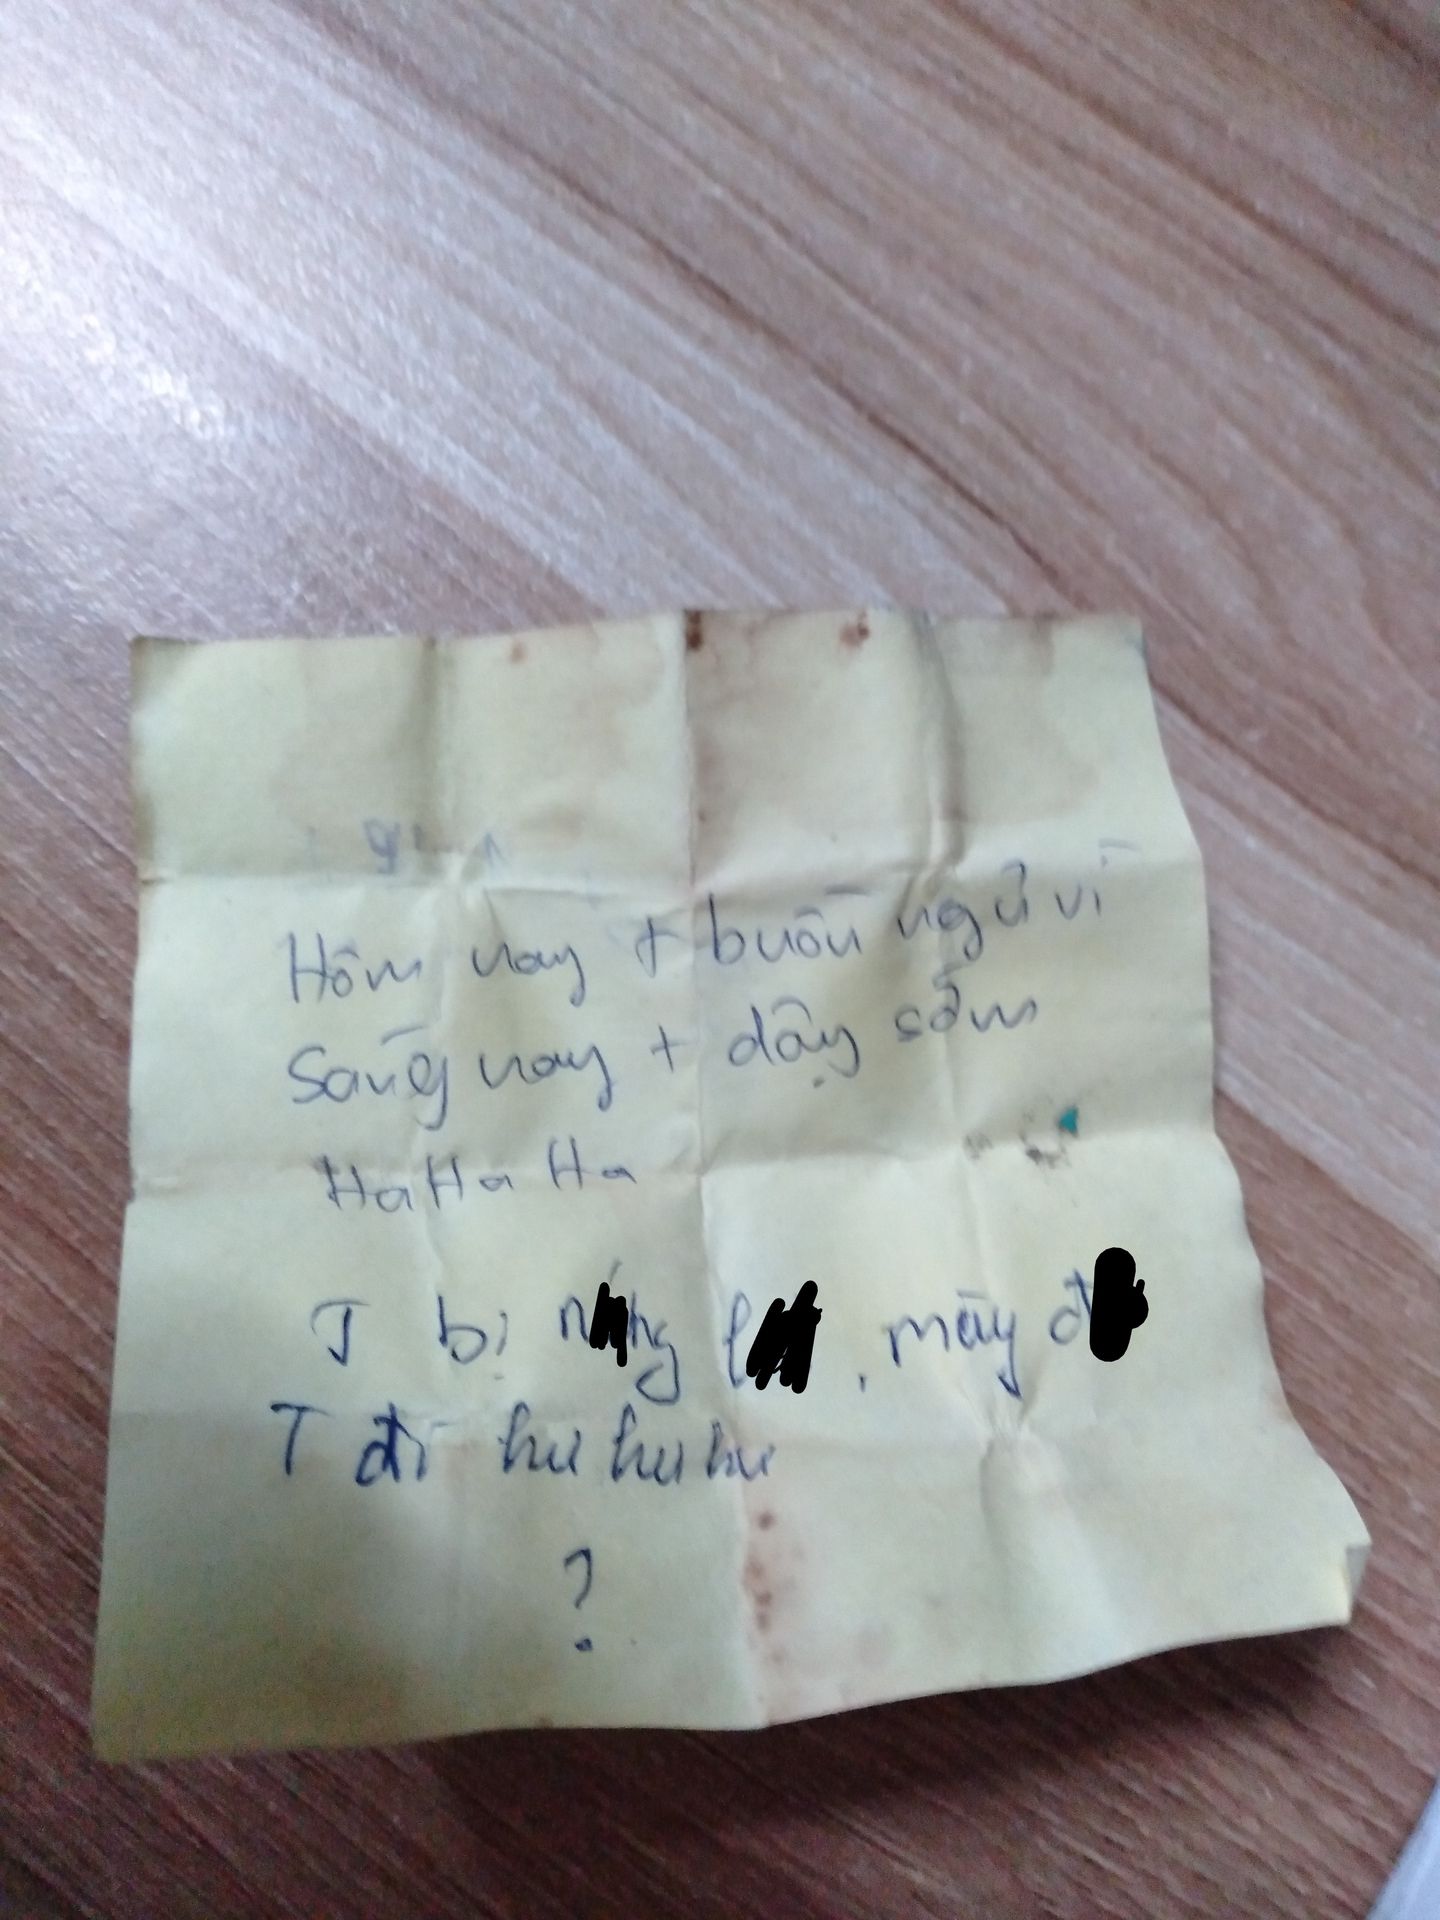 Hôm nay t buồn ngủ vì
Sáng nay t dậy sớm
Ha Ha Ha
T bị , mày
T đi hu hu hu
?